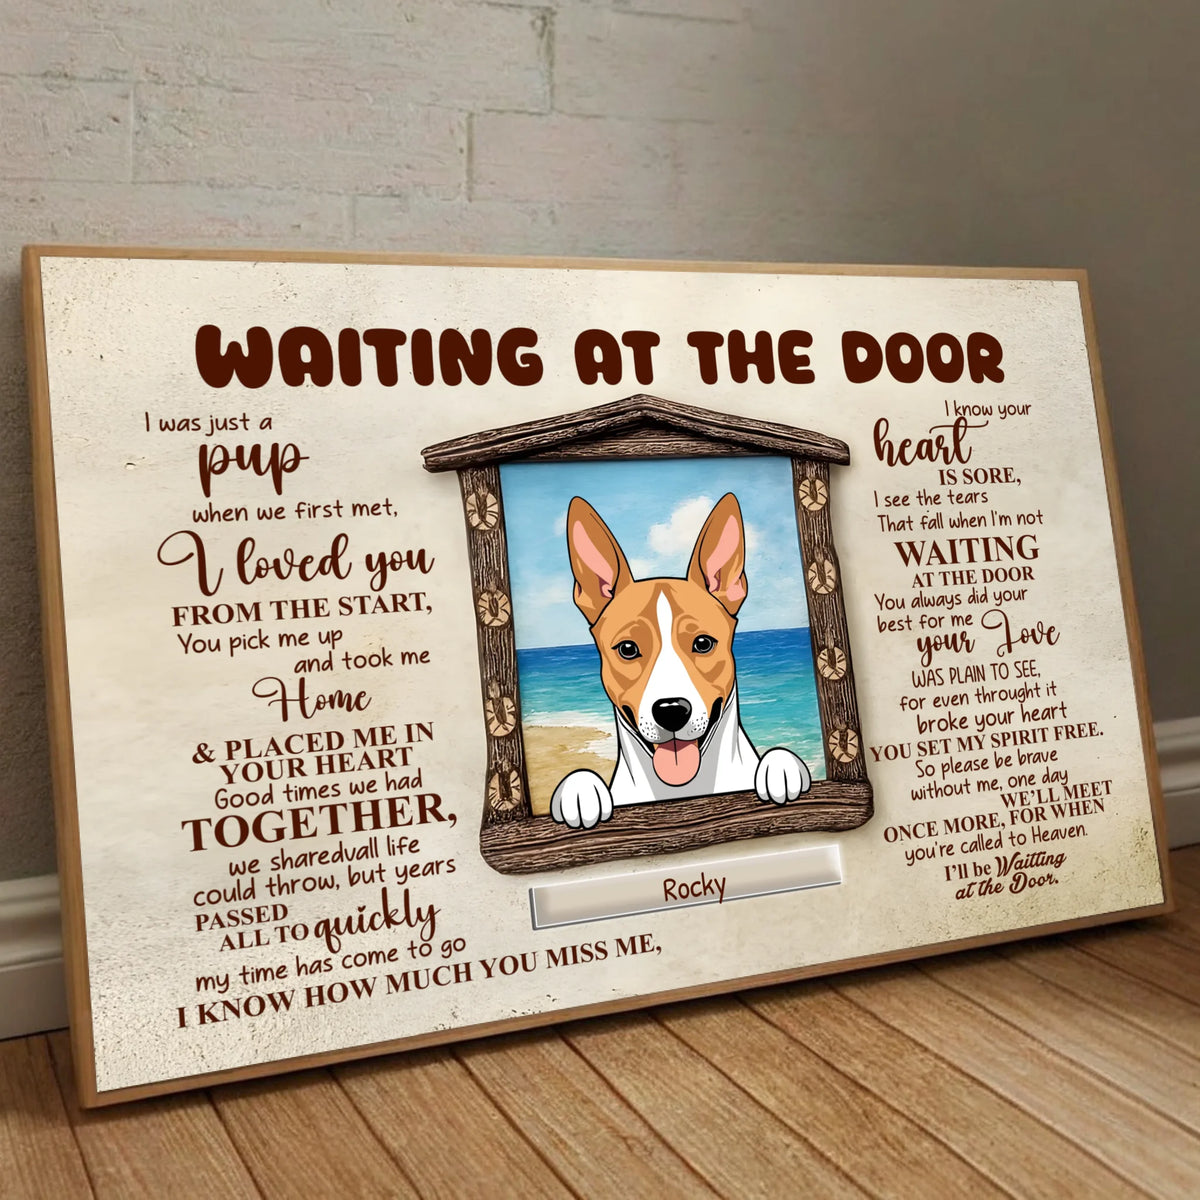 WAITING AT THE DOOR
I was just a
pup
when we first met,
I loved you
FROM THE START,
You pick me up
and took me
Home
& PLACED ME IN
YOUR HEART
Good times we had
TOGETHER,
we sharedvall life
could throw, but years
PASSED
ALL TO quickly
my time has come to go
I KNOW HOW MUCH YOU MISS ME,
I know your
heart
IS SORE,
I see the tears
That fall when I'm not
WAITING
AT THE DOOR
You always did your
best for me
your Love
WAS PLAIN TO SEE,
for even throught it
broke your heart
YOU SET MY SPIRIT FREE.
So please be brave
without me, one day
WE'LL MEET
ONCE MORE, FOR WHEN
you're called to Heaven.
I'll be Waitting
at the Door.
Rocky